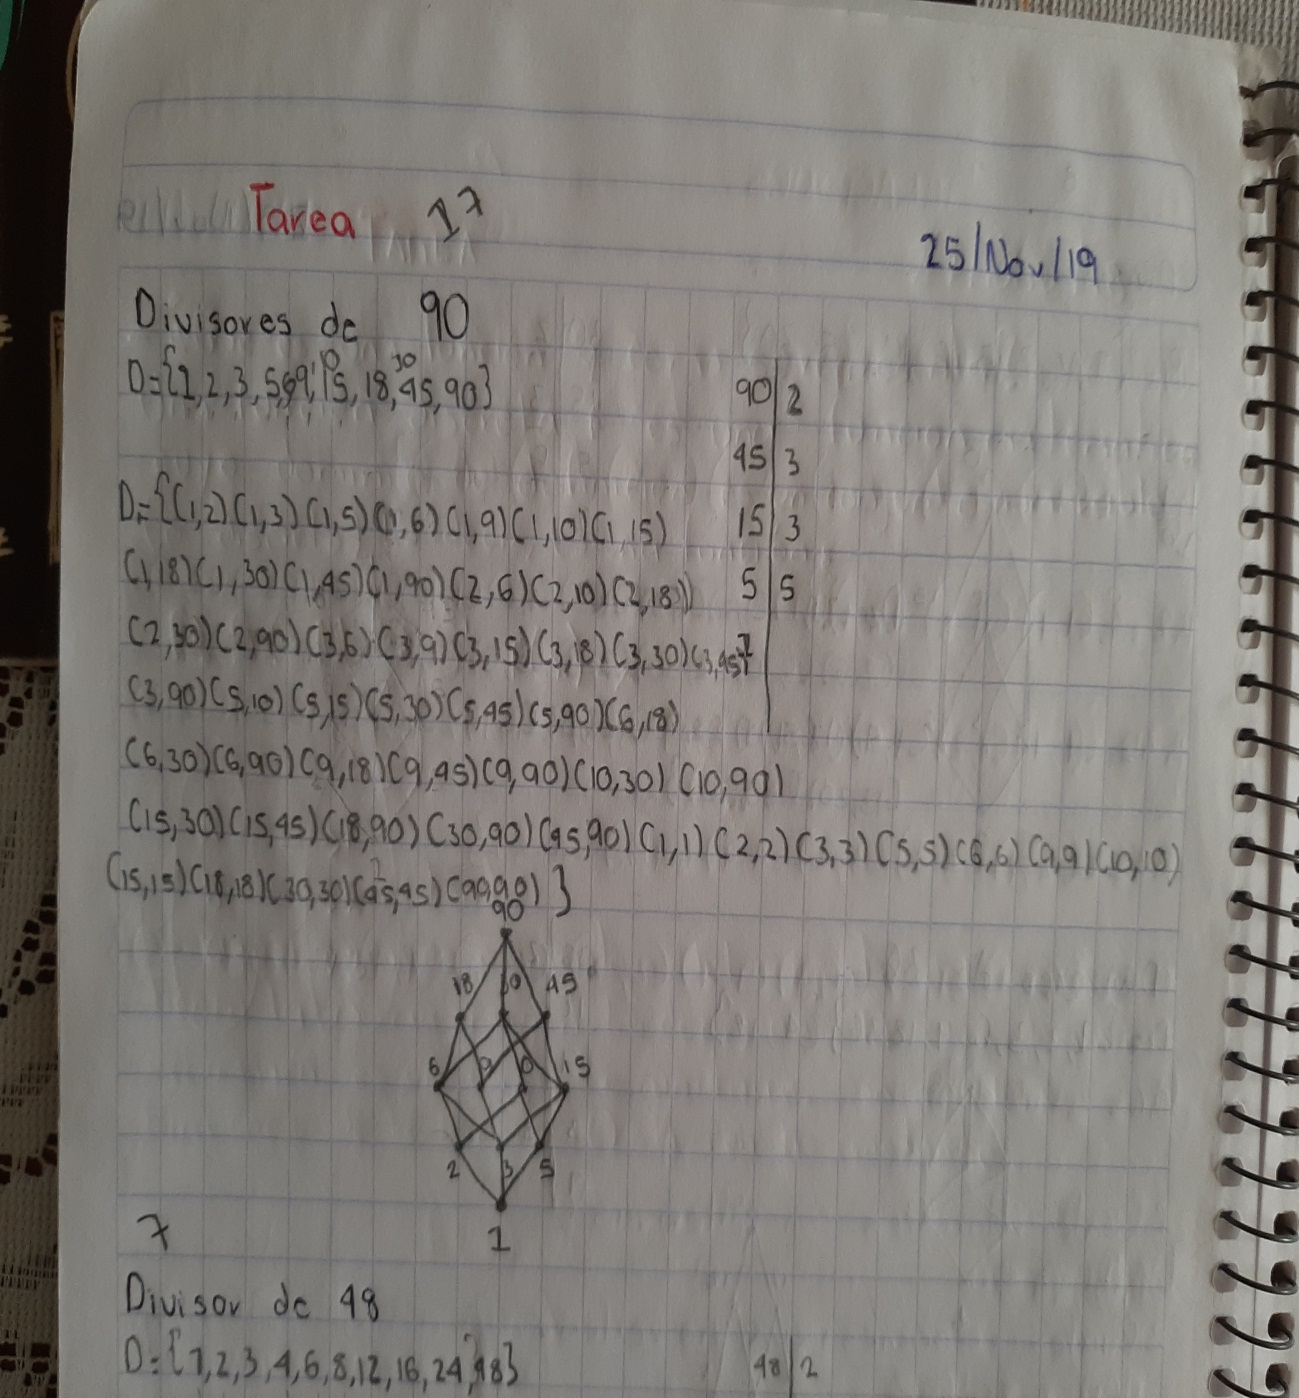 Tarea 17
25/Nov/19
Divisores de 90
D={1,2,3,5,6,9,10,15,18,30,45,90}
90|2
45|3
15|3
5|5
D={(1,2)(1,3)(1,5)(1,6)(1,9)(1,10)(1,15)
(1,18)(1,30)(1,45)(1,90)(2,6)(2,10)(2,18)
(2,30)(2,90)(3,6)(3,9)(3,15)(3,18)(3,30)(3,45)
(3,90)(5,10)(5,15)(5,30)(5,45)(5,90)(6,18)
(6,30)(6,90)(9,18)(9,45)(9,90)(10,30)(10,90)
(15,30)(15,45)(18,90)(30,90)(45,90)(1,1)(2,2)(3,3)(5,5)(6,6)(9,9)(10,10)
(15,15)(18,18)(30,30)(45,45)(90,90)}
90
18 30 45
6 9 10 15
2 3 5
1
7
Divisor de 48
D={1,2,3,4,6,8,12,16,24,48}
48|2